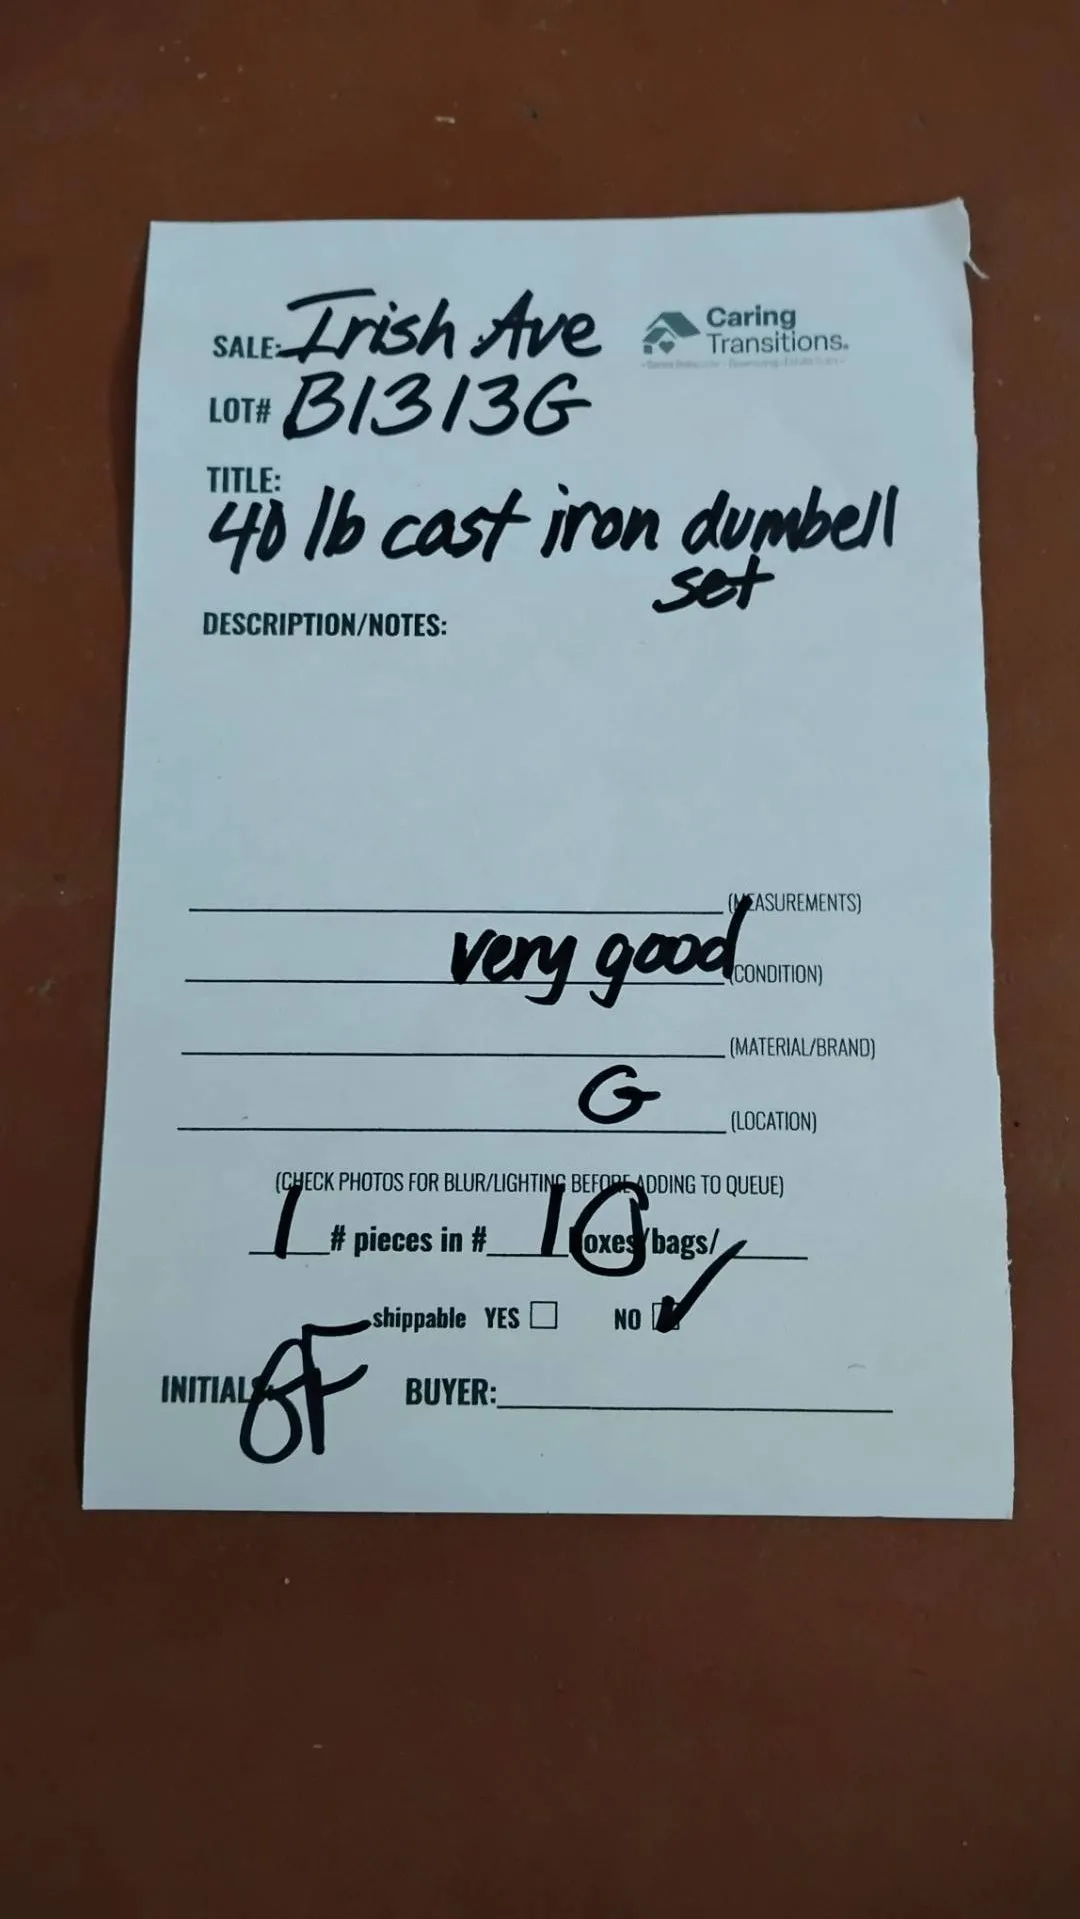 SALE: Irish Ave
Caring
Transitions.
LOT# B1313G
TITLE:
40 lb cast iron dumbell
set
DESCRIPTION/NOTES:
(MEASUREMENTS)
very good (CONDITION)
(MATERIAL/BRAND)
G (LOCATION)
(CHECK PHOTOS FOR BLUR/LIGHTING BEFORE ADDING TO QUEUE)
1 # pieces in # 1 boxes/bags/
shippable YES NO
INITIALS: BUYER: